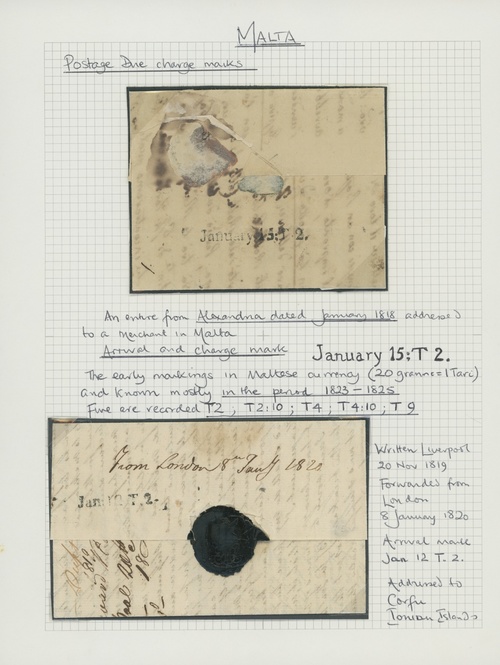 MALTA
Postage Due charge marks
January 15:T 2.
An entire from Alexandria dated January 1818 addressed
to a merchant in Malta
Arrival and charge mark January 15:T 2.
The early markings in Maltese currency (20 granne=1Tari)
and known mostly in the period 1823-1825
Five are recorded T2 ; T2:10 ; T4 ; T4:10 ; T9
From London 8th Jany 1820
Jan: 12 T. 2-
Written Liverpool
20 Nov 1819
Forwarded from
London
8 January 1820
Arrival mark
Jan 12 T. 2.
Addressed to
Corfu
Ionian Islands